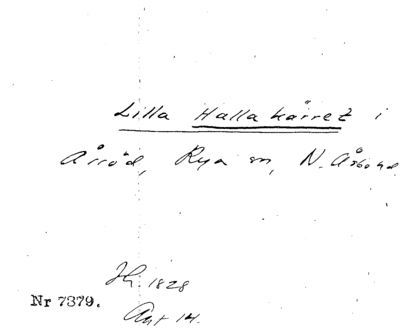 Lilla Hallakärret i
Årröd, Rya sn, N. Åsbo hd.
Nr 7379.
1828
Akt 14.